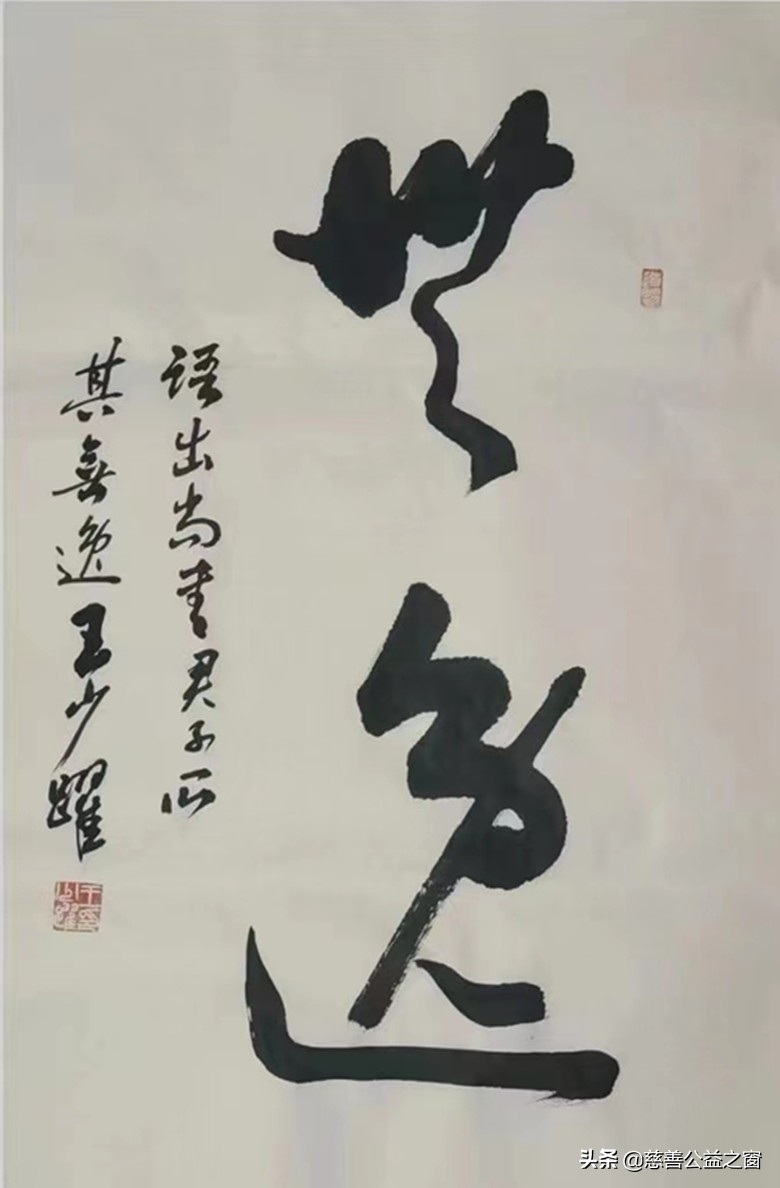 無逸
語出尚書君子所
其無逸王少躍
头条 @慈善公益之窗